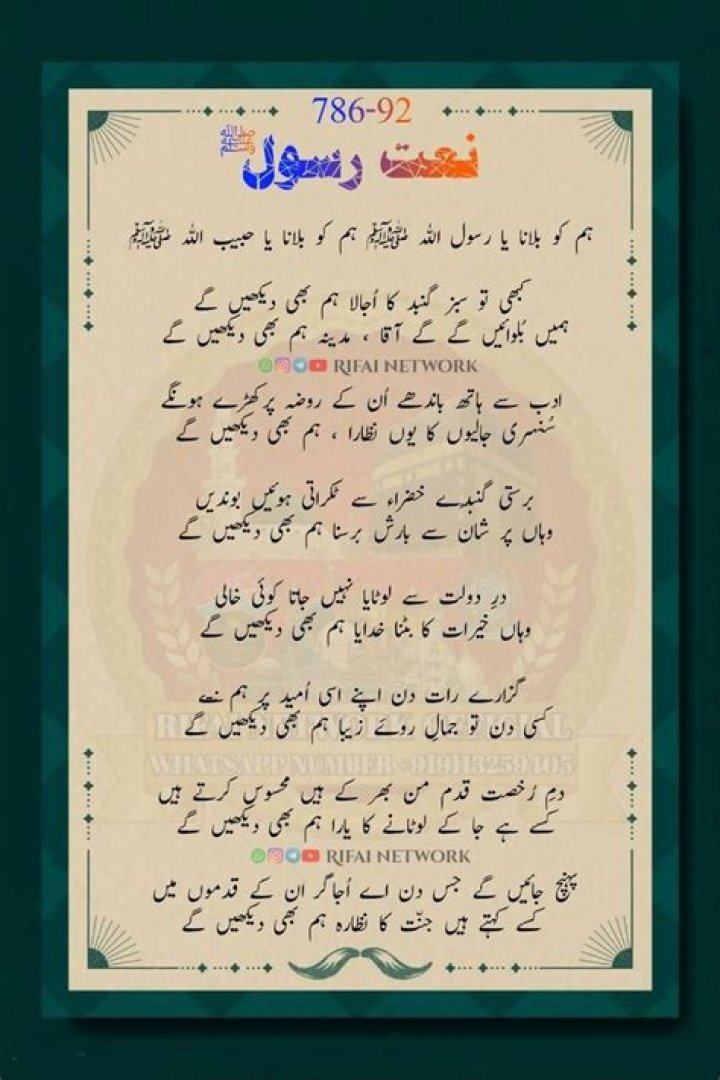 786-92
نعت رسول ﷺ
ہم کو بلانا یا رسول اللہ ﷺ ہم کو بلانا یا حبیب اللہ ﷺ
کبھی تو سبز گنبد کا اُجالا ہم بھی دیکھیں گے
ہمیں بُلوائیں گے گے آقا ، مدینہ ہم بھی دیکھیں گے
RIFAI NETWORK
ادب سے ہاتھ باندھے اُن کے روضہ پر کھڑے ہونگے
سُنہری جالیوں کا یوں نظارا ، ہم بھی دیکھیں گے
برستی گنبدِے خضراء سے ٹکراتی ہوئیں بوندیں
وہاں پر شان سے بارش برسنا ہم بھی دیکھیں گے
درِ دولت سے لوٹایا نہیں جاتا کوئی خالی
وہاں خیرات کا بٹنا خدایا ہم بھی دیکھیں گے
گزارے رات دن اپنے اسی اُمید پر ہم نے
کسی دن تو جمالِ روئے زیبا ہم بھی دیکھیں گے
RIFAI NETWORK OFFICIAL
WHATSAPP NUMBER +919113259405
دمِ رُخصت قدم من بھر کے ہیں محسوس کرتے ہیں
کسے ہے جا کے لوٹانے کا یارا ہم بھی دیکھیں گے
RIFAI NETWORK
پہنچ جائیں گے جس دن اے اُجاگر ان کے قدموں میں
کسے کہتے ہیں جنّت کا نظارہ ہم بھی دیکھیں گے